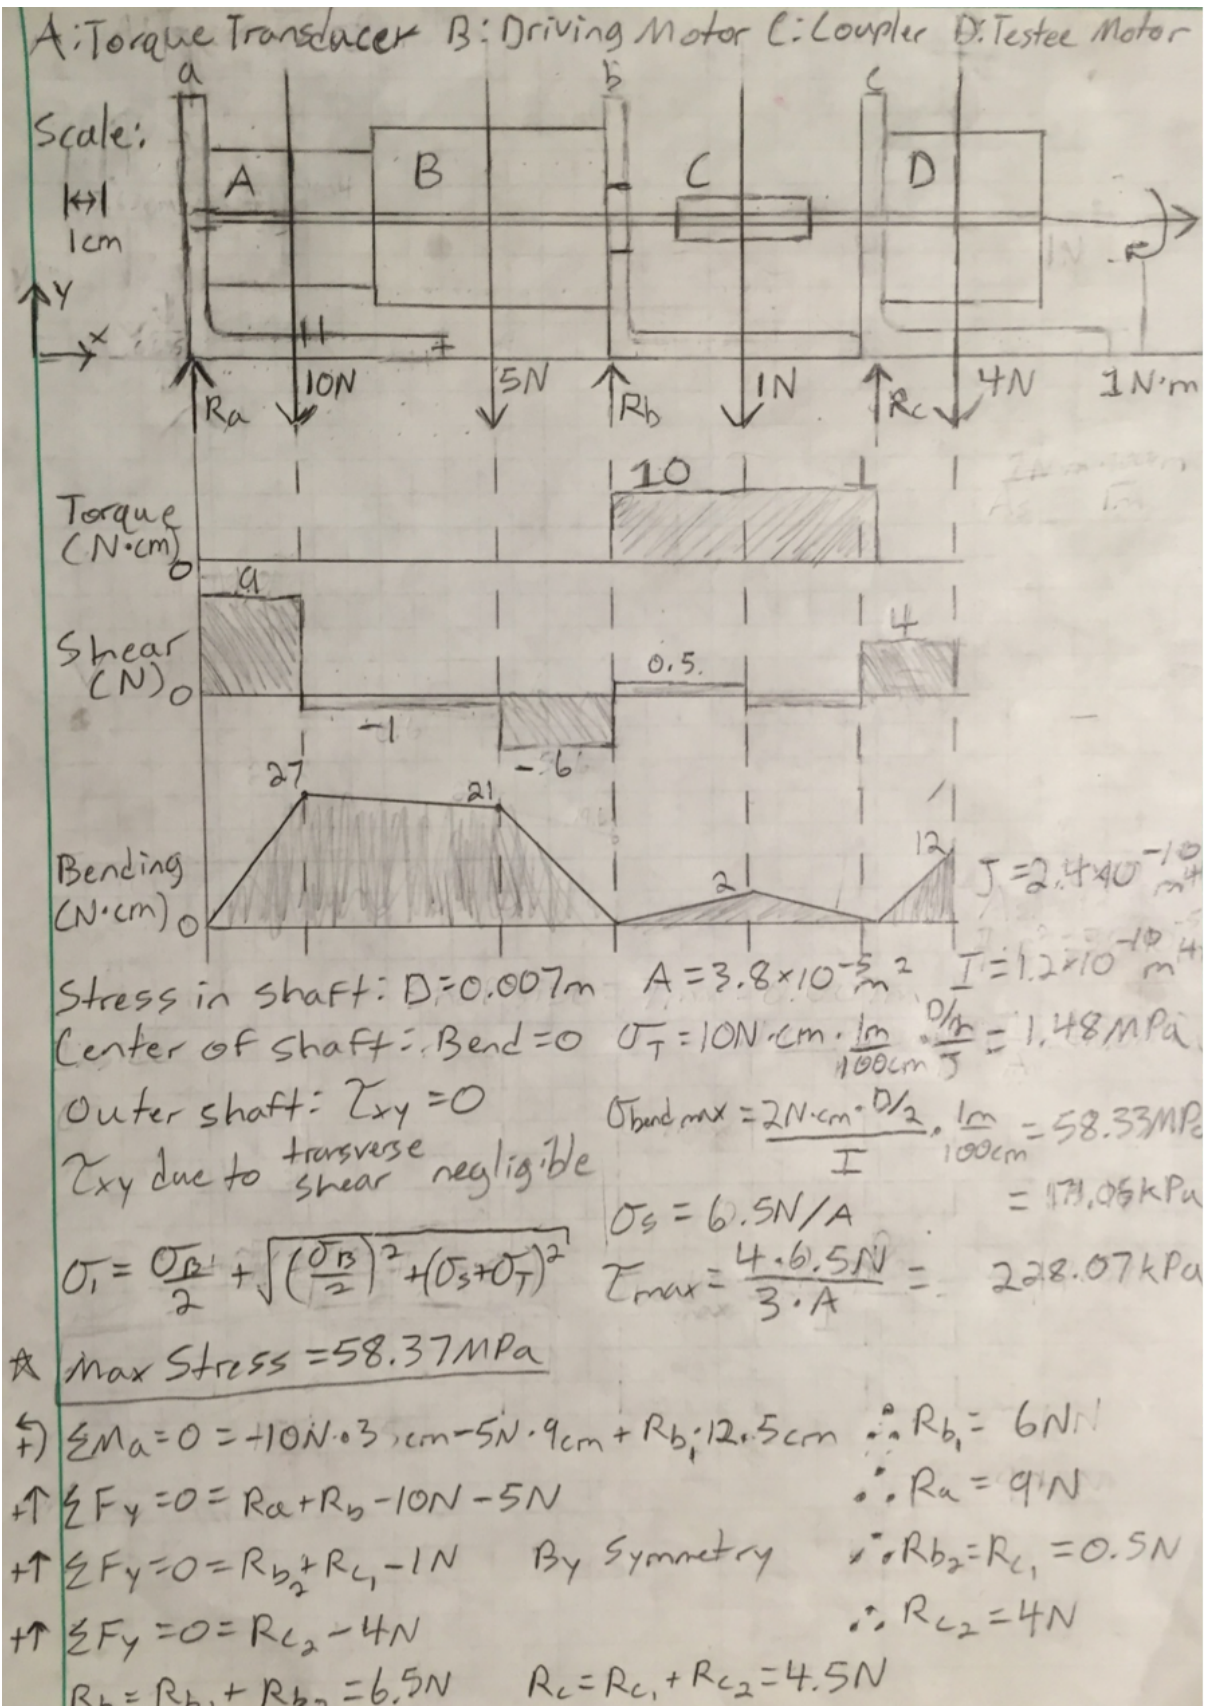 A: Torque Transducer B: Driving Motor C: Coupler D: Testee Motor
a b c
Scale:
1cm
A B C D
Y
x
Ra 10N 5N Rb 1N Rc 4N 1N·m
Torque
(N·cm)
0
10
Shear
(N)
0
9
-1
-6
0.5
4
Bending
(N·cm)
0
27
21
2
12
J=2.4×10⁻¹⁰ m⁴
Stress in shaft: D=0.007m A=3.8×10⁻⁵m² I=1.2×10⁻¹⁰m⁴
Center of shaft: Bend=0 σT=10N·cm·1m/100cm·D/2/J=1.48MPa
Outer shaft: τxy=0 σbend max=2N·cm·D/2/I·1m/100cm=58.33MPa
τxy due to transverse shear negligible
σs=6.5N/A
σ1=σB/2+√((σB/2)²+(σs+σT)²) τmax=4·6.5N/3·A= 228.07kPa
☆ Max Stress=58.37MPa
+) ΣMa=0=-10N·3cm-5N·9cm+Rb1·12.5cm ∴Rb1=6N
+↑ ΣFy=0=Ra+Rb-10N-5N ∴Ra=9N
+↑ ΣFy=0=Rb2+Rc1-1N By Symmetry ∴Rb2=Rc1=0.5N
+↑ ΣFy=0=Rc2-4N ∴Rc2=4N
Rb=Rb1+Rb2=6.5N Rc=Rc1+Rc2=4.5N